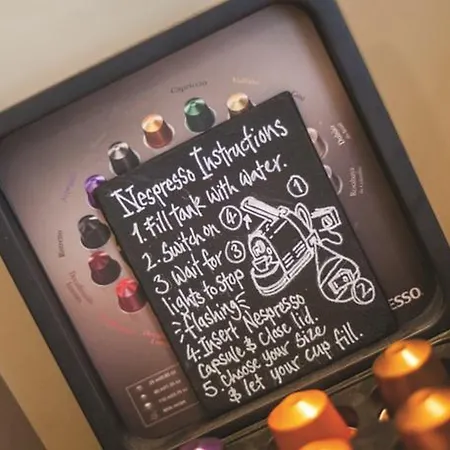 Capriccio
Nespresso Instructions
1. Fill tank with water.
2. Switch on
3 Wait for
lights to stop
flashing
4. Insert Nespresso
Capsule & Close lid.
5. Choose your size
& let your cup fill.
4
1
3
2
Ristretto
ESSO.